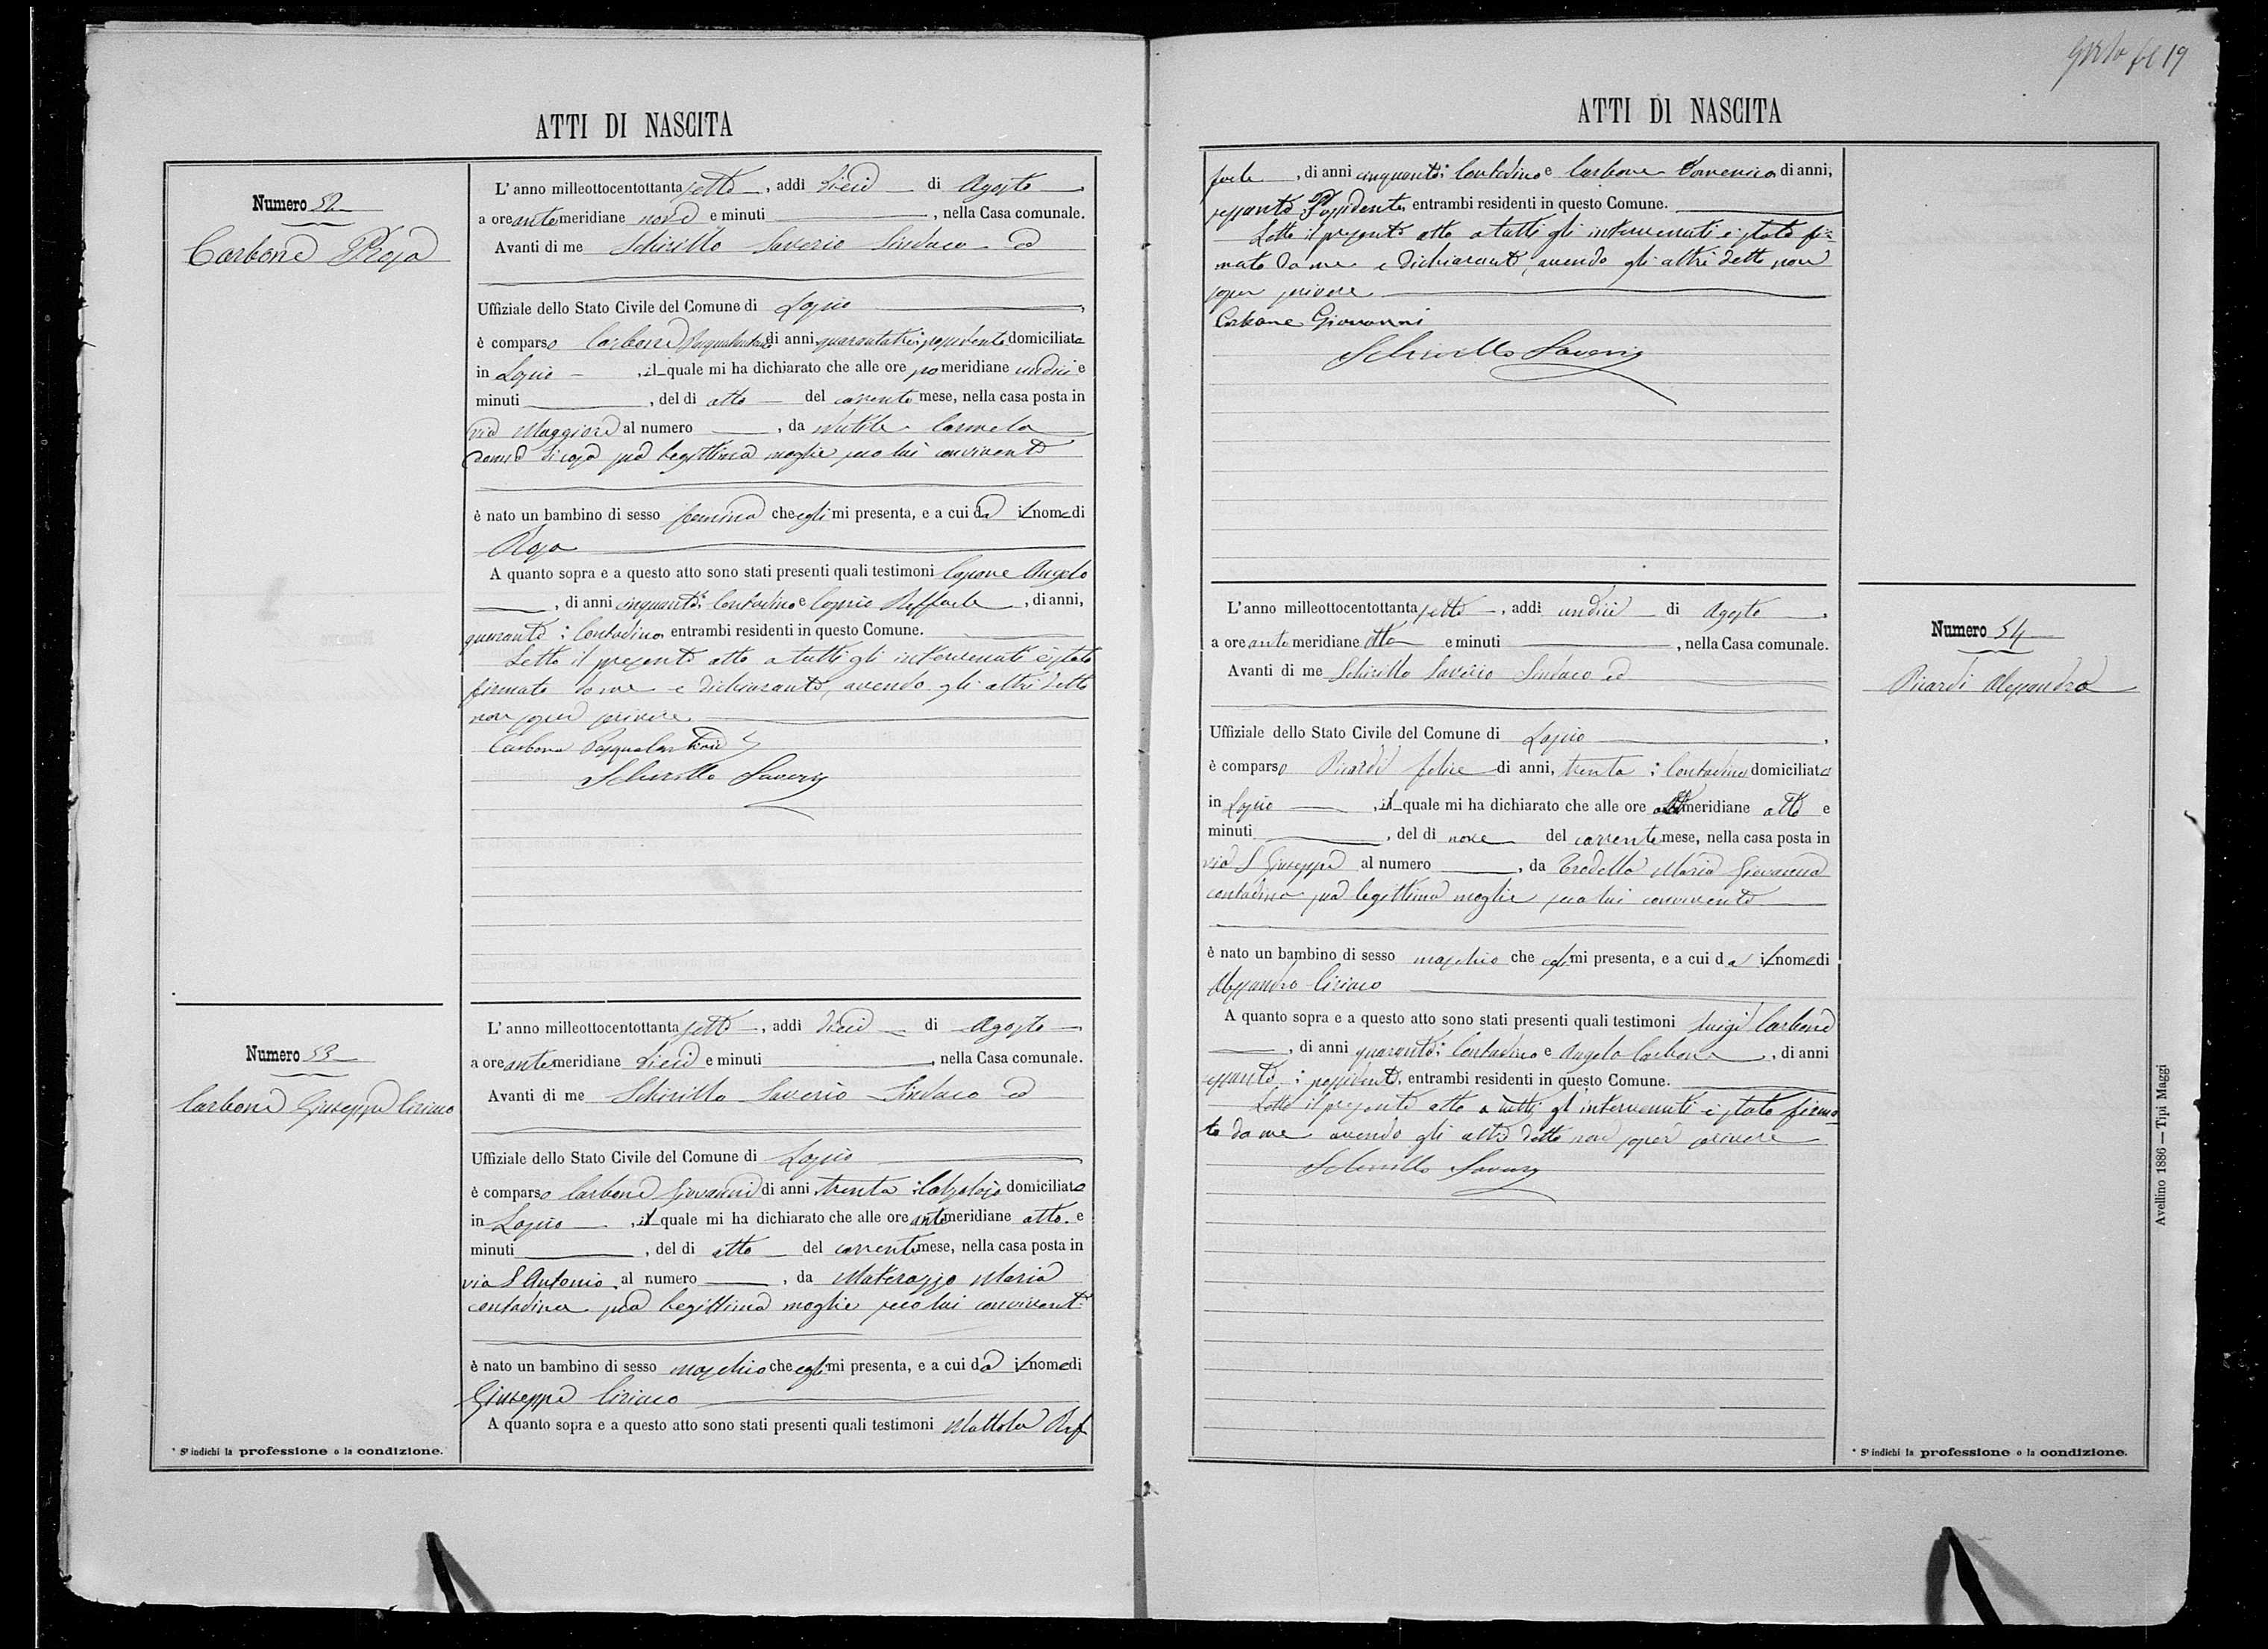 fl 19
ATTI DI NASCITA
Numero 52
Carbone Rosa
L'anno milleottocentottantasette, addì dieci di Agosto
a ore antemeridiane nove e minuti , nella Casa comunale.
Avanti di me Schirillo Saverio Sindaco ed
Uffiziale dello Stato Civile del Comune di Lapio
è comparso Carbone Pasqualantonio di anni quarantatre; possidente domiciliato
in Lapio , il quale mi ha dichiarato che alle ore pomeridiane undici e
minuti , del dì otto del corrente mese, nella casa posta in
via Maggiore al numero , da Carmela
donna di casa sua legittima moglie seco lui convivente
è nato un bambino di sesso femina che egli mi presenta, e a cui dà il nome di
Rosa
A quanto sopra e a questo atto sono stati presenti quali testimoni Capone Angelo
, di anni cinquanta; Contadino e Raffaele , di anni,
quaranta; Contadino, entrambi residenti in questo Comune.
Letto il presente atto a tutti gli intervenuti è stato
firmato da me e dichiarante, avendo gli altri detto
non saper scrivere
Carbone Pasqualantonio
Schirillo Saverio
Numero 53
Carbone Giuseppe Ciriaco
L'anno milleottocentottantasette, addì dieci di Agosto
a ore antemeridiane dieci e minuti , nella Casa comunale.
Avanti di me Schirillo Saverio Sindaco ed
Uffiziale dello Stato Civile del Comune di Lapio
è comparso Carbone Giovanni di anni trenta; Calzolaio domiciliato
in Lapio , il quale mi ha dichiarato che alle ore antemeridiane otto e
minuti , del dì otto del corrente mese, nella casa posta in
via S Antonio al numero , da Materazzo Maria
contadina sua legittima moglie seco lui convivente
è nato un bambino di sesso maschio che egli mi presenta, e a cui dà il nome di
Giuseppe Ciriaco
A quanto sopra e a questo atto sono stati presenti quali testimoni Mattola Raf
* S'indichi la professione o la condizione.
ATTI DI NASCITA
faele , di anni cinquanta; Contadino e Carbone Domenico di anni,
sessanta; Possidente, entrambi residenti in questo Comune.
Letto il presente atto a tutti gli intervenuti è stato fir
mato da me e dichiarante, avendo gli altri detto non
saper scrivere
Carbone Giovanni
Schirillo Saverio
Numero 54
Picardi Alessandro
L'anno milleottocentottantasette, addì undici di Agosto
a ore antemeridiane otto e minuti , nella Casa comunale.
Avanti di me Schirillo Saverio Sindaco ed
Uffiziale dello Stato Civile del Comune di Lapio
è comparso Picardi Felice di anni, trenta; Contadino domiciliato
in Lapio , il quale mi ha dichiarato che alle ore meridiane otto e
minuti , del dì nove del corrente mese, nella casa posta in
via S Giuseppe al numero , da Maria Giovanna
contadina sua legittima moglie seco lui convivente
è nato un bambino di sesso maschio che egli mi presenta, e a cui dà il nome di
Alessandro Ciriaco
A quanto sopra e a questo atto sono stati presenti quali testimoni Luigi Carbone
, di anni quaranta; Contadino e Angelo Carbone , di anni
sessanta; possidente, entrambi residenti in questo Comune.
Letto il presente atto a tutti gl intervenuti è stato firma
to da me avendo gli altri detto non saper scrivere
Schirillo Saverio
* S'indichi la professione o la condizione.
Avellino 1886 — Tipi Maggi